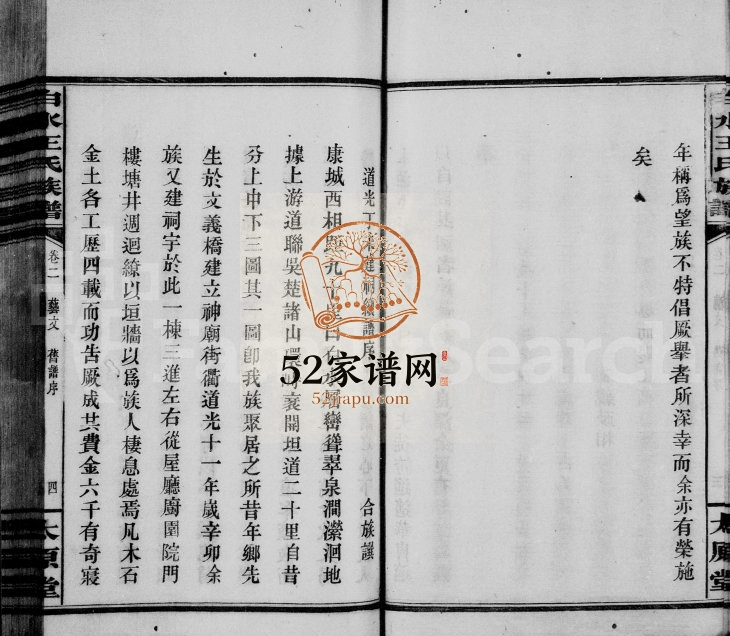 年稱爲望族不特倡厥舉者所深幸而余亦有榮施
矣
道光丁 建祠 譜序 合族譔
康城西相距九十 白 層巒聳翠泉澗瀠洄地
據上游道聯吳楚諸山環 衺開坦道二十里自昔
分上中下三圖其一圖卽我族聚居之所昔年鄉先
生於文義橋建立神廟街衢道光十一年歲辛卯余
族又建祠宇於此一棟三進左右從屋廳廚圊院門
樓塘井週迴繚以垣牆以爲族人棲息處焉凡木石
金土各工歷四載而功告厥成共費金六千有奇寢
白水王氏族譜
卷二 藝文 舊譜序
四
太原堂
52家谱网
52jiapu.com
FamilySearch